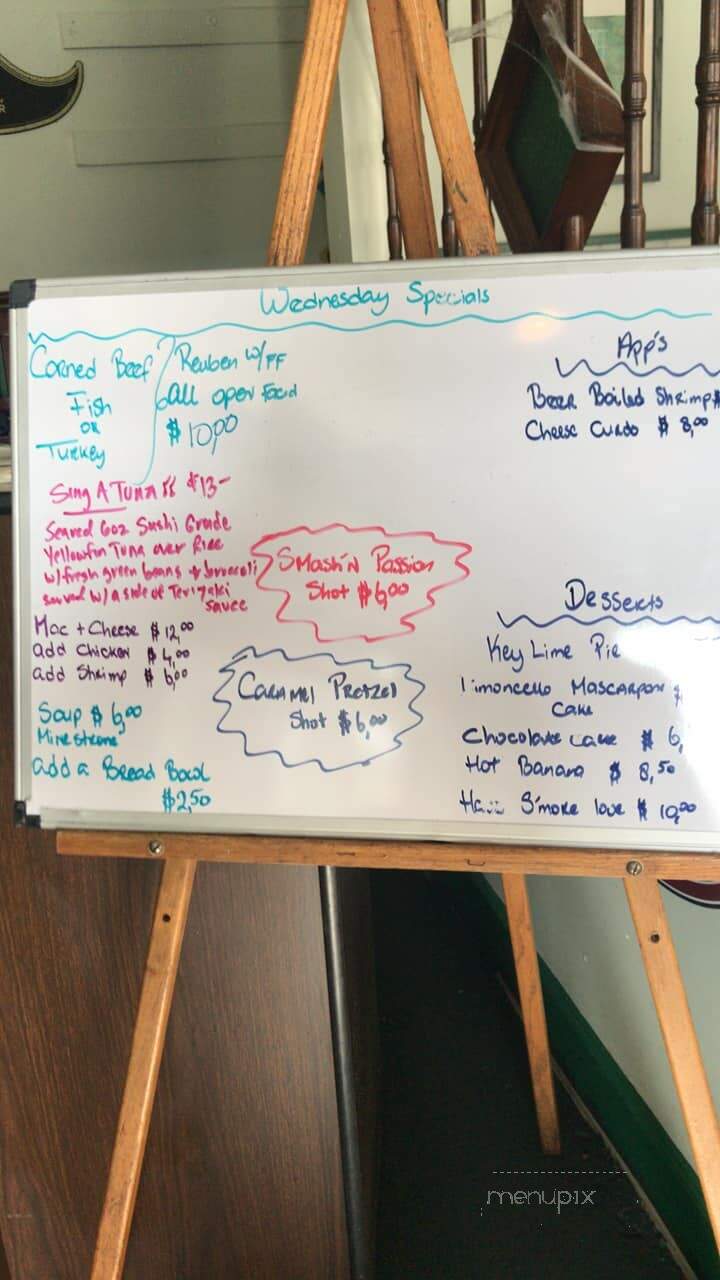 Wednesday Specials
Corned Beef
Fish
OR
Turkey
Reuben w/FF
all open faced
$10,00
Sing A Tuna $13-
Seared 6oz Sushi Grade
Yellowfin Tuna over Rice
w/fresh green beans + broccoli
served w/a side of Teriyaki
sauce
Mac + Cheese $12,00
add Chicken $4,00
add Shrimp $6,00
Soup $6,00
Minestrone
add a Bread Bowl
$2,50
Smash'N Passion
Shot $6,00
Caramel Pretzel
Shot $6,00
App's
Beer Boiled Shrimp $
Cheese Curds $8,00
Desserts
Key Lime Pie
Limoncello Mascarpon
Cake
Chocolate Cake $6,
Hot Banana $8,50
S'more love $10,00
menupix